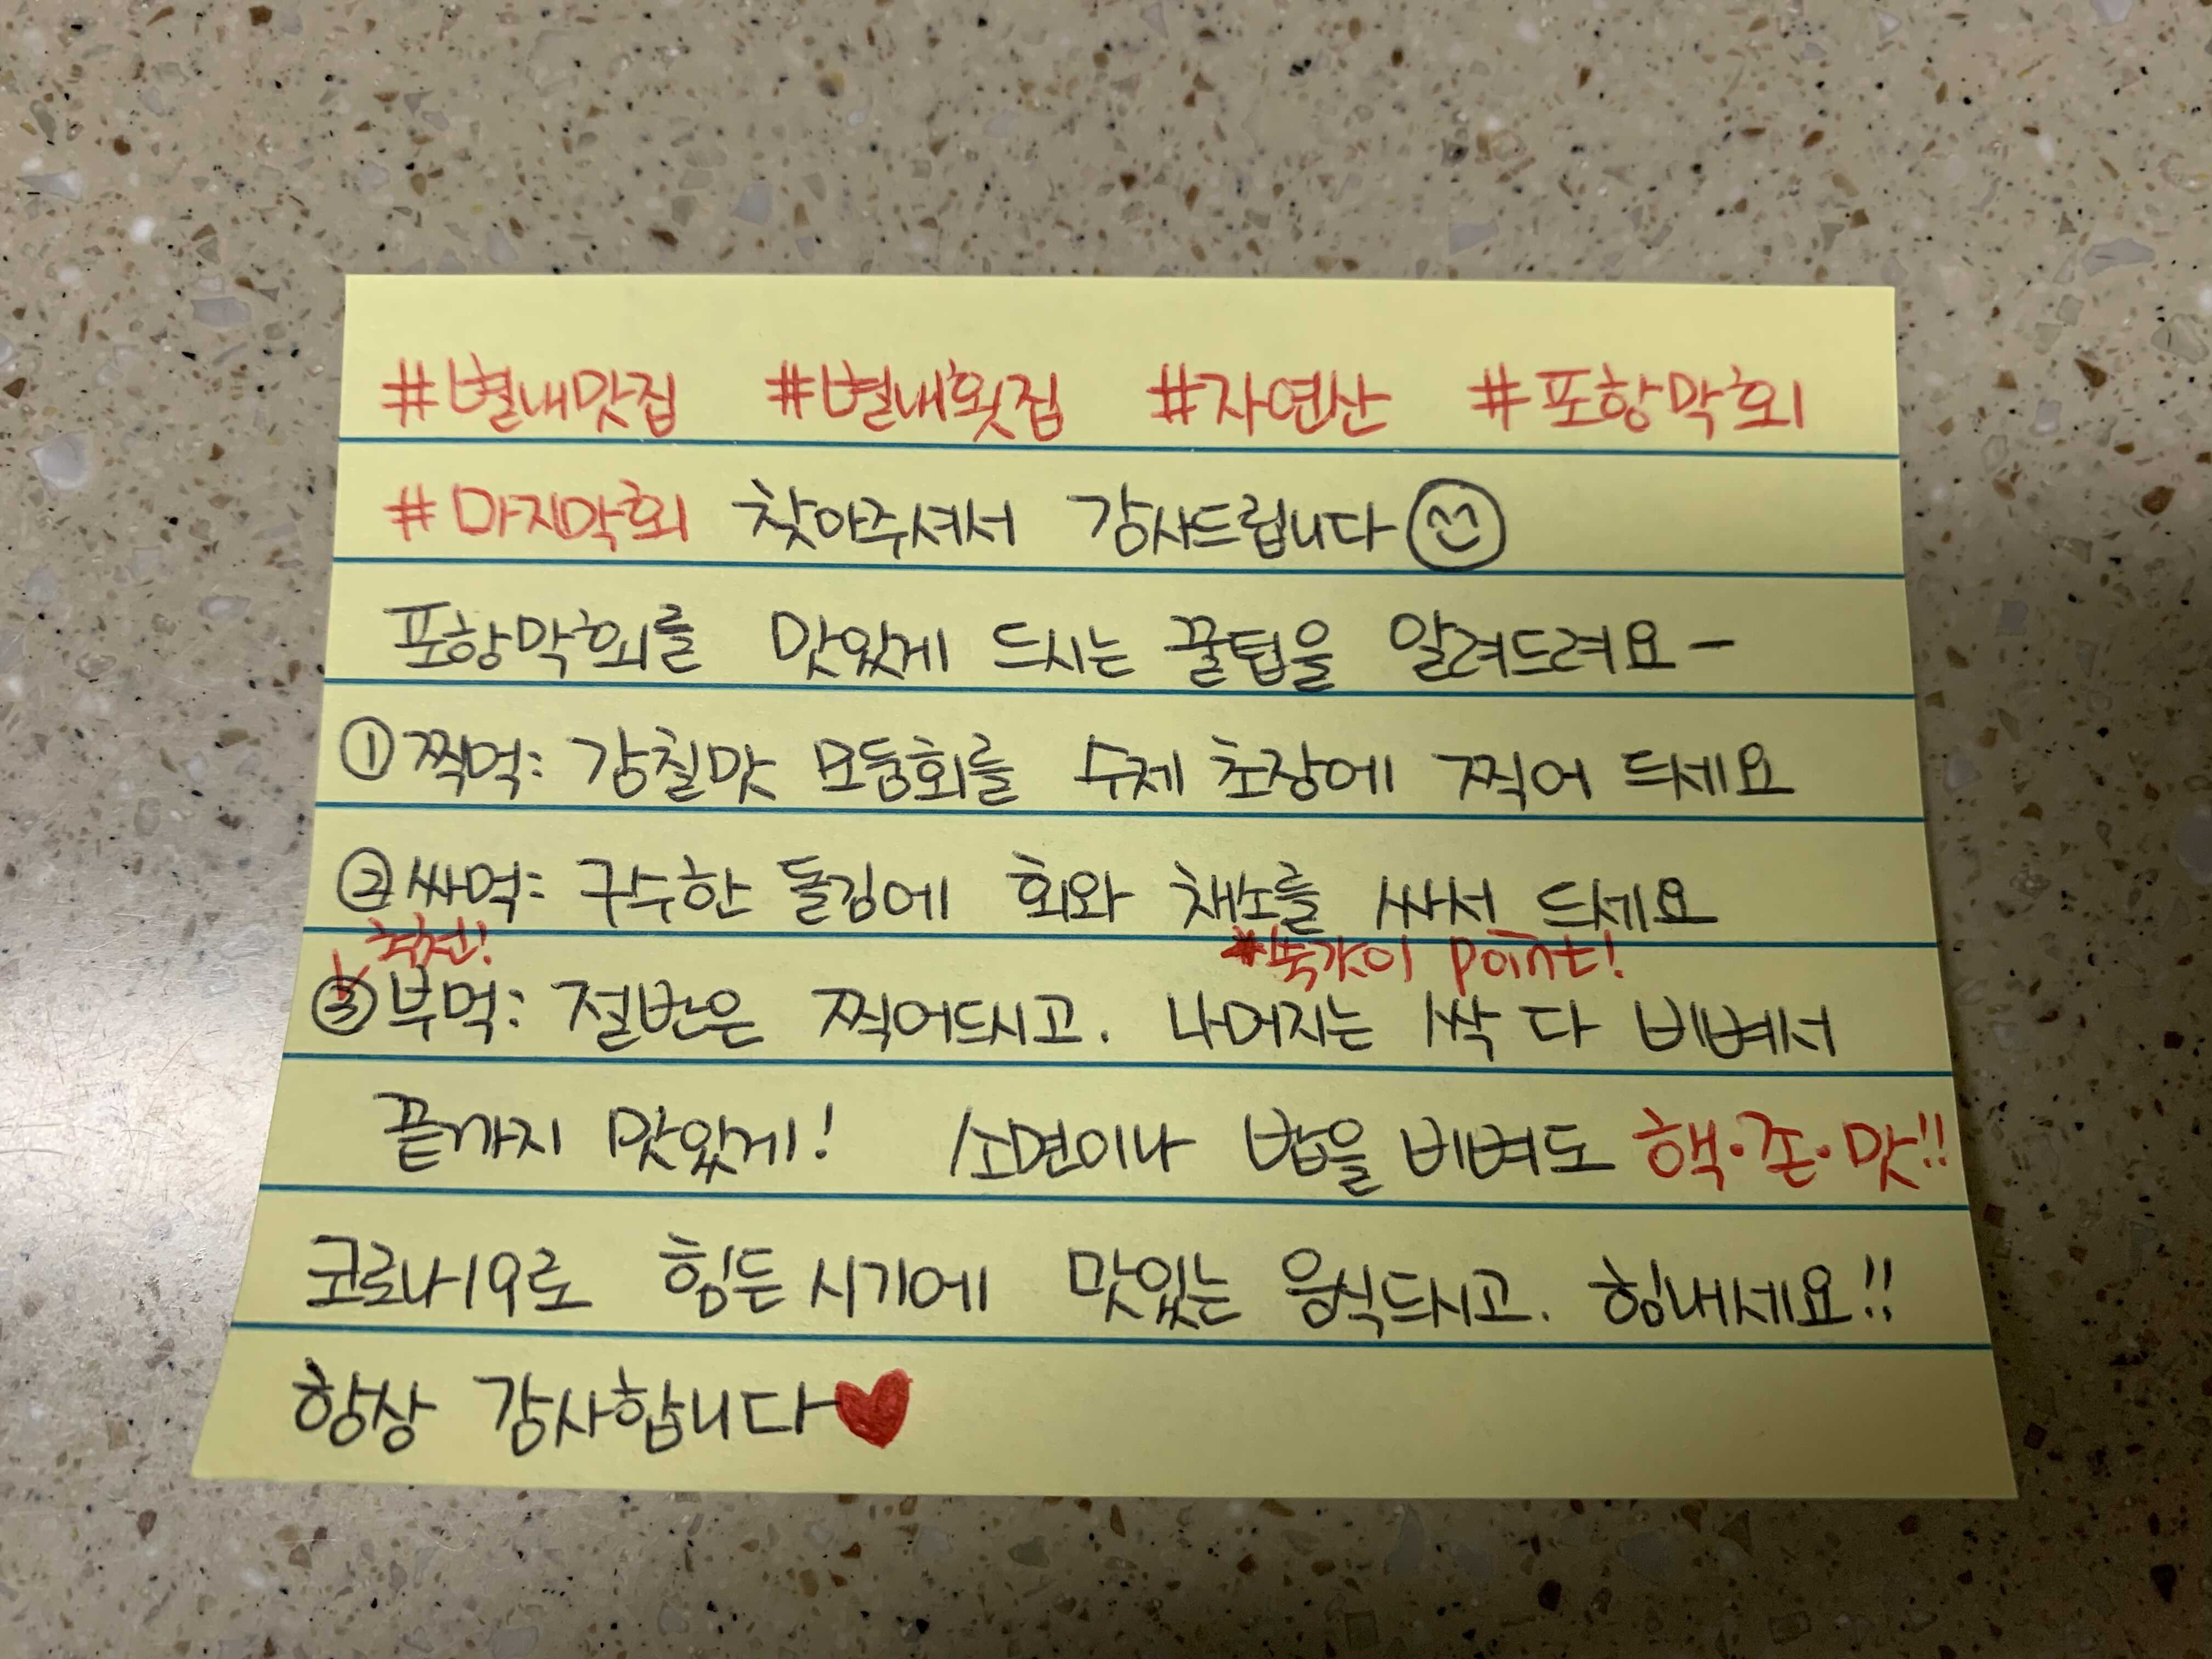 #별내맛집 #별내횟집 #자연산 #포항막회
#마지막회 찾아주셔서 감사드립니다
포항막회를 맛있게 드시는 꿀팁을 알려드려요-
① 찍먹: 감칠맛 모둠회를 수제 초장에 찍어 드세요
② 싸먹: 구수한 돌김에 회와 채소를 싸서 드세요
추천! *쑥갓이 point!
③ 부먹: 절반은 찍어드시고. 나머지는 싹 다 비벼서
끝까지 맛있게! 소면이나 밥을 비벼도 핵·존·맛!!
코로나19로 힘든 시기에 맛있는 음식드시고. 힘내세요!!
항상 감사합니다